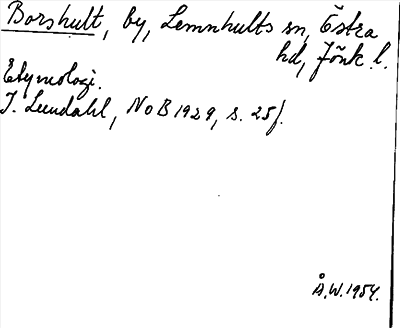 Borshult, by, Lemnhults sn, Östra
hd, Jönk. l.
Etymologi.
I. Lundahl, NoB 1929, s. 25f.
Å.W. 1954.